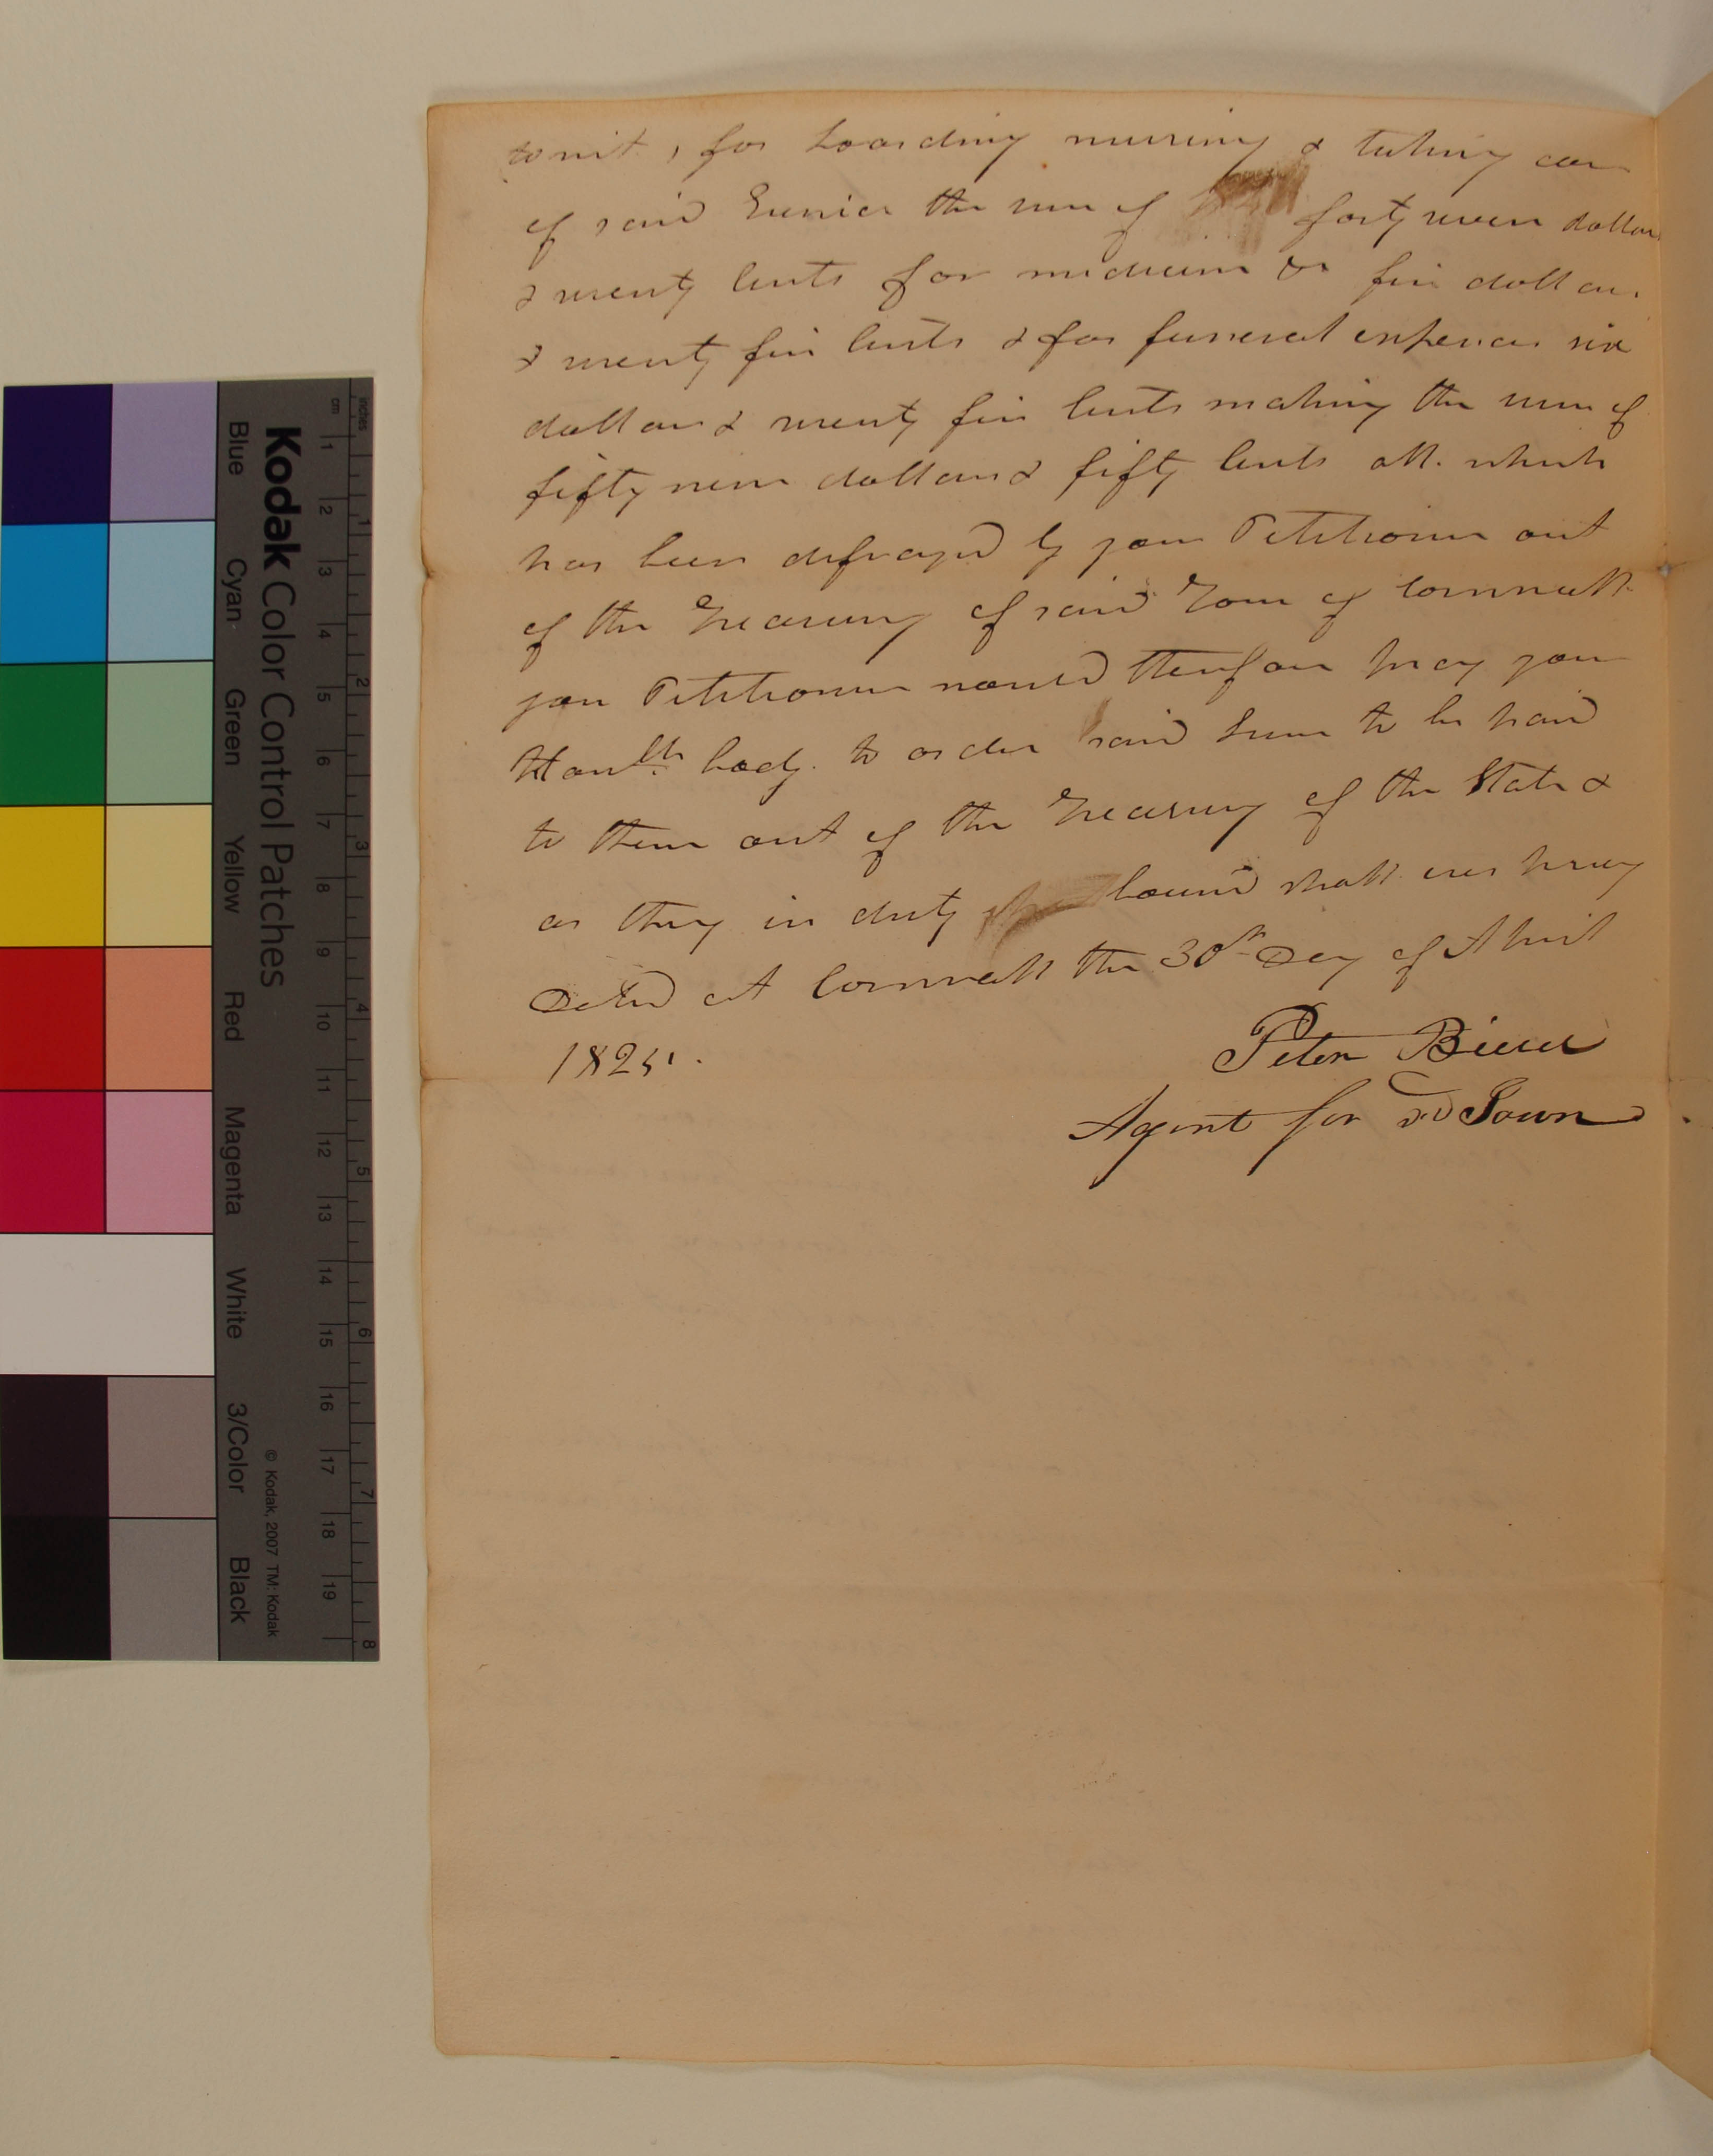 to wit, for boarding nursing & taking care
of said Eunice the sum of forty seven dollars
& seventy cents for medicine &c five dollars
& seventy five cents & for funeral expences six
dollars & seventy five cents making the sum of
fifty nine dollars & fifty cents all which
has been defrayed by your Petitioners out
of the Treasury of said Town of Cornwall
your Petitioners would therefore pray your
Honble body to order said sum to be paid
to them out of the Treasury of the State &
as they in duty bound shall ever pray
Dated at Cornwall the 30th Day of April
1825.
Peter Bierce
Agent for sd Town
Kodak Color Control Patches
© Kodak, 2007 TM: Kodak
Blue Cyan Green Yellow Red Magenta White 3/Color Black
cm 1 2 3 4 5 6 7 8 9 10 11 12 13 14 15 16 17 18 19
inches 1 2 3 4 5 6 7 8